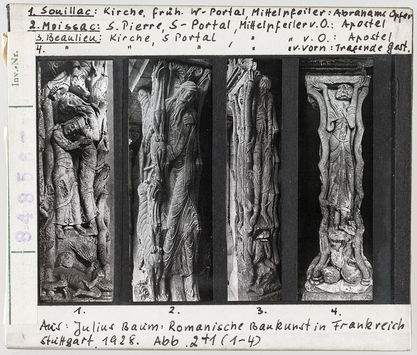 1. Souillac: Kirche, früh. W-Portal, Mittelpfeiler: Abrahams Opfer
2. Moissac: S. Pierre, S-Portal, Mittelpfeiler v. O.: Apostel
3. Beaulieu: Kirche, S Portal " " v. O.: Apostel
4. " " " " v. vorn: Tragende Gest.
Inv.-Nr.
1. 2. 3. 4.
Aus: Julius Baum: Romanische Baukunst in Frankreich
Stuttgart 1928. Abb. 2+1 (1-4)